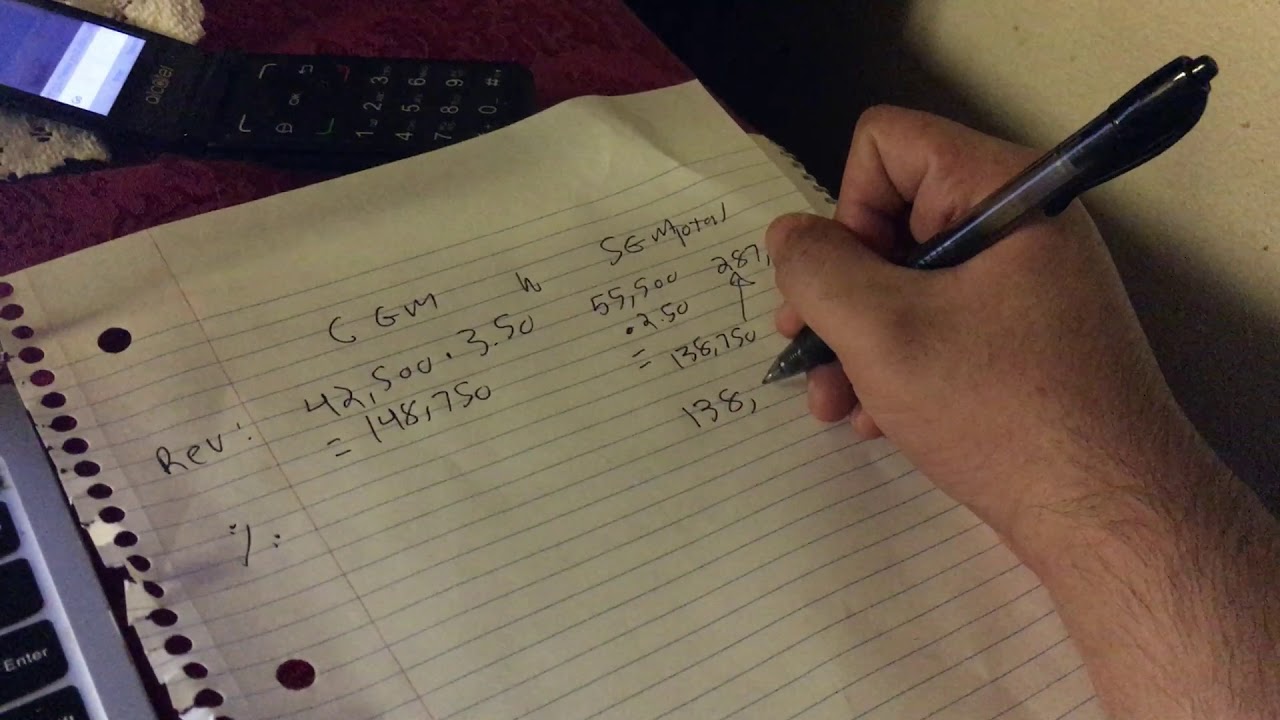 alcatel
OK
1 2 3
4 5 6
7 8 9
0 #
CGM
42,500 · 3.50
55,500
287,
· 2.50
Rev:
= 148,750
= 138,750
138,
%:
Enter